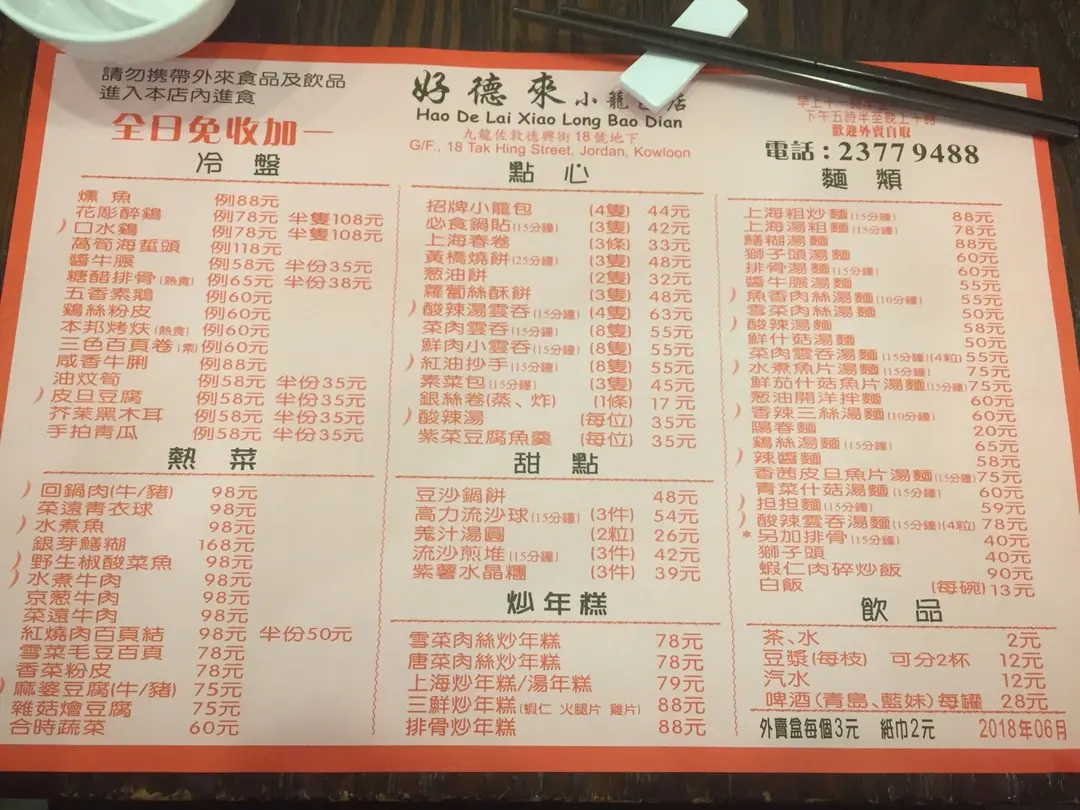 請勿携帶外來食品及飲品
進入本店內進食
全日免收加一
好德來小籠包店
Hao De Lai Xiao Long Bao Dian
九龍佐敦德興街18號地下
G/F., 18 Tak Hing Street, Jordan, Kowloon
下午五時半至晚上十時
歡迎外賣自取
電話：2377 9488
冷盤
燻魚 例88元
花彫醉鷄 例78元 半隻108元
口水鷄 例78元 半隻108元
萵筍海蜇頭 例118元
醬牛𦟌 例58元 半份35元
糖醋排骨(熱食) 例65元 半份38元
五香素鵝 例60元
鷄絲粉皮 例60元
本邦烤夫(熱食) 例60元
三色百頁卷(素) 例60元
咸香牛脷 例88元
油炆筍 例58元 半份35元
皮旦豆腐 例58元 半份35元
芥茉黑木耳 例58元 半份35元
手拍青瓜 例58元 半份35元
熱菜
回鍋肉(牛/豬) 98元
菜遠青衣球 98元
水煮魚 98元
銀芽鱔糊 168元
野生椒酸菜魚 98元
水煮牛肉 98元
京葱牛肉 98元
菜遠牛肉 98元
紅燒肉百頁結 98元 半份50元
雪菜毛豆百頁 78元
香菜粉皮 78元
麻婆豆腐(牛/豬) 75元
雜菇燴豆腐 75元
合時蔬菜 60元
點心
招牌小籠包 (4隻) 44元
必食鍋貼(15分鐘) (3隻) 42元
上海春卷 (3條) 33元
黃橋燒餅(25分鐘) (3隻) 48元
葱油餅 (2隻) 32元
蘿蔔絲酥餅 (3隻) 48元
酸辣湯雲吞(15分鐘) (4隻) 63元
菜肉雲吞(15分鐘) (8隻) 55元
鮮肉小雲吞(15分鐘) (8隻) 55元
紅油抄手(15分鐘) (8隻) 55元
素菜包(15分鐘) (3隻) 45元
銀絲卷(蒸、炸) (1條) 17元
酸辣湯 (每位) 35元
紫菜豆腐魚羹 (每位) 35元
甜點
豆沙鍋餅 48元
高力流沙球(15分鐘) (3件) 54元
羗汁湯圓 (2粒) 26元
流沙煎堆(15分鐘) (3件) 42元
紫薯水晶糰 (3件) 39元
炒年糕
雪菜肉絲炒年糕 78元
唐菜肉絲炒年糕 78元
上海炒年糕/湯年糕 79元
三鮮炒年糕(蝦仁 火腿片 雞片) 88元
排骨炒年糕 88元
麵類
上海粗炒麵(15分鐘) 88元
上海湯粗麵(15分鐘) 78元
鱔糊湯麵 88元
獅子頭湯麵 60元
排骨湯麵(15分鐘) 60元
醬牛𦟌湯麵 55元
魚香肉絲湯麵(10分鐘) 55元
雪菜肉絲湯麵 50元
酸辣湯麵 58元
鮮什菇湯麵 50元
菜肉雲吞湯麵(15分鐘)(4粒) 55元
水煮魚片湯麵(15分鐘) 75元
鮮茄什菇魚片湯麵(15分鐘) 75元
葱油開洋拌麵 60元
香辣三絲湯麵(10分鐘) 60元
陽春麵 20元
鷄絲湯麵(15分鐘) 65元
辣醬麵 58元
香茜皮旦魚片湯麵(15分鐘) 75元
青菜什菇湯麵(15分鐘) 60元
担担麵(15分鐘) 59元
酸辣雲吞湯麵(15分鐘)(4粒) 78元
*另加排骨(15分鐘) 40元
獅子頭 40元
蝦仁肉碎炒飯 90元
白飯 (每碗) 13元
飲品
茶、水 2元
豆漿(每枝) 可分2杯 12元
汽水 12元
啤酒(青島、藍妹)每罐 28元
外賣盒每個3元 紙巾2元 2018年06月